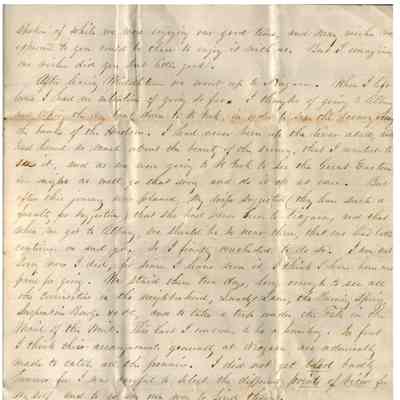 spoken of while we were enjoying our good time, and many wishes were
expressed to you could be there to enjoy it with us. But I imagine
our wishes did you but little good.
After leaving Middletown we went up to Niagara. When I left
home I had no intention of going so far. I thought of going to Albany
and taking the day boat down to N. York, in order to see the scenery along
the banks of the Hudson. I had never been up the river
had heard so much about the beauty of the scenery, that I wanted to
see it, and as we were going to N. York to see the Great Eastern
we might as well go that way and do it all at once. But
after this journey was planned, my
faculty for
when we got to Albany, we should be so near there, that we had better
continue on and go. So I finally concluded to do so. I am not
sorry now I did, for since I have seen it, I think I have
gone for going. We staid there two days, long enough to see all
the curiosities in the neighborhood, Lundy's Lane, the Burning Spring,
Suspension Bridge &c &c, and to take a trip under the Falls in the
Maid of the Mist. This last I conceive to be a humbug. In fact
I think their arrangements generally at Niagara are admirably
made to catch all the pennies. I did not get bled badly
however for I was careful to select the different points of view for
myself and